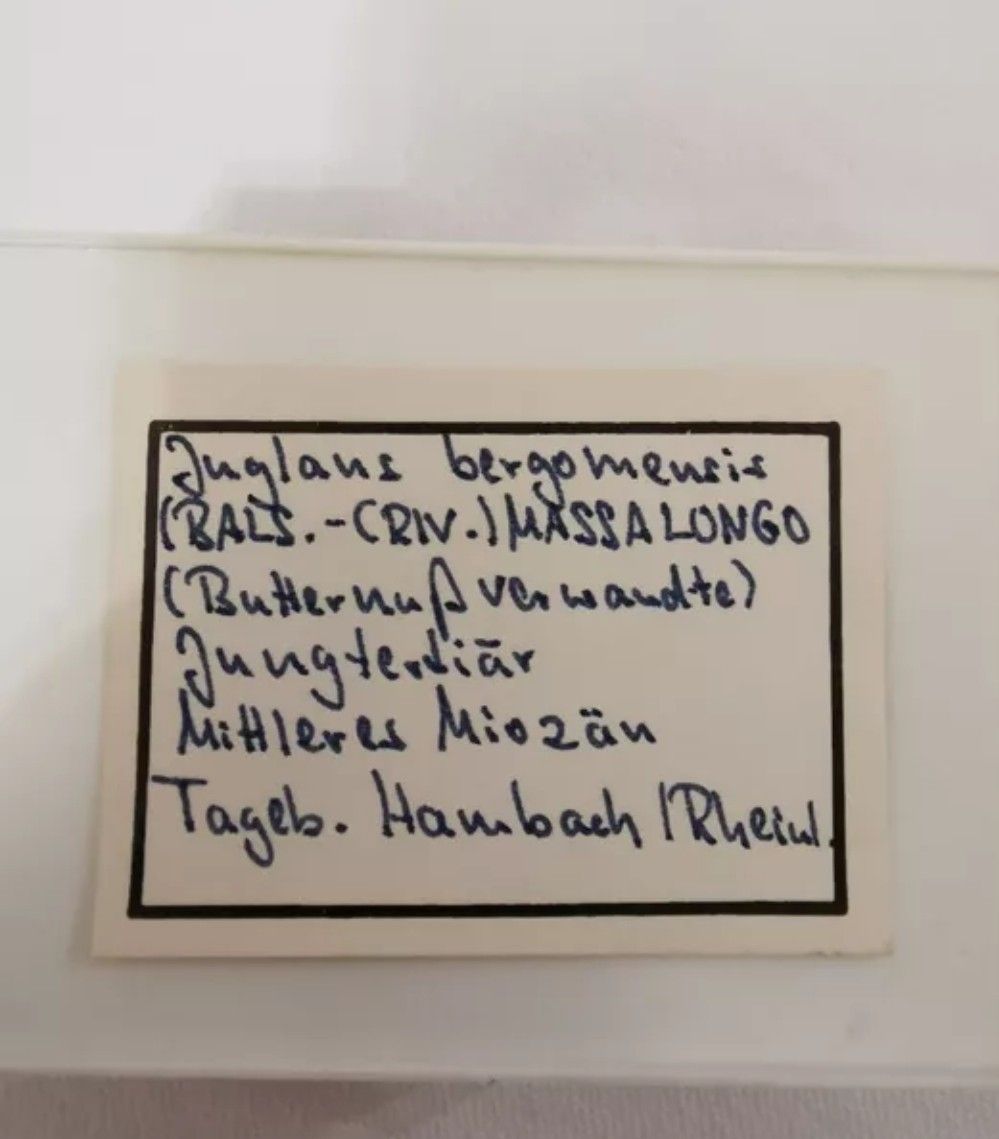 Juglans bergomensis
(BALS.-(RIV.) MASSALONGO
(Butternußverwandte)
Jungtertiär
Mittleres Miozän
Tageb. Hambach/Rheinl.